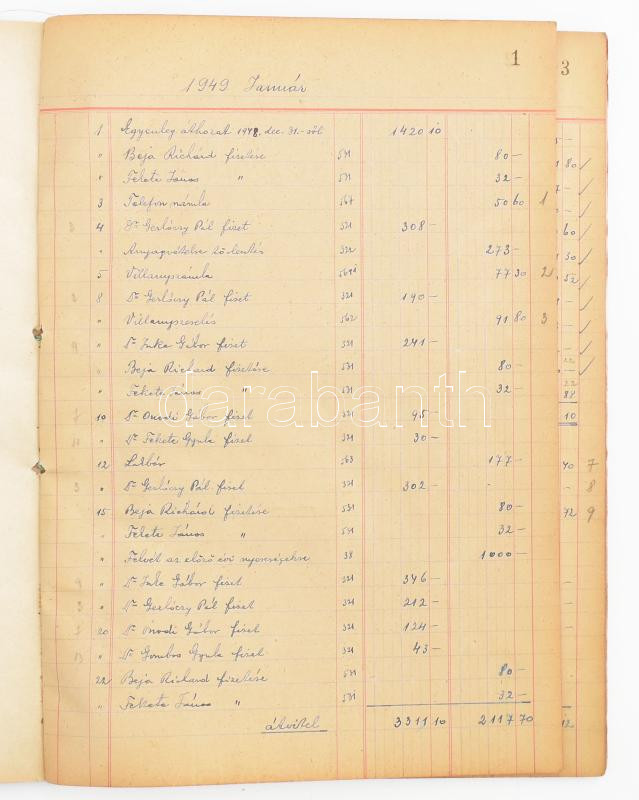 1
3
1949 Január
1 Egyenleg áthozat 1948. dec. 31.-ről 1420 10
" Beja Richárd fizetése 531 80 —
" Fekete János " 531 32 —
3 Telefon számla 567 50 60 1
4 Dr Gerlóczy Pál fizet 321 308 —
" Anyagvételre 322 273 —
5 Villanyszámla 77 30 2
2 8 Dr Gerlóczy Pál fizet 321 190 —
" Villanyszerelés 562 91 80 3
9 " Dr Inke Gábor fizet 321 241 —
" Beja Richárd fizetése 531 80 —
" Fekete János " 531 32 —
7 10 Dr Onodi Gábor fizet 321 95 —
11 " Dr Fekete Gyula fizet 321 30 —
12 Lakbér 563 177 —
3 " Dr Gerlóczy Pál fizet 321 302 —
15 Beja Richárd fizetése 531 80 —
" Fekete János " 531 32 —
" Felvét az előző évi nyereségekre 38 1000 —
9 " Dr Inke Gábor fizet 321 346 —
3 " Dr Gerlóczy Pál fizet 321 212 —
7 20 Dr Onodi Gábor fizet 321 124 —
13 " Dr Gombos Gyula fizet 321 43 —
22 Beja Richárd fizetése 531 80 —
" Fekete János " 531 32 —
átvitel 3311 10 2117 70
80
60
30
52
22
22
88
10
40 7
8
72 9
12
darabanth